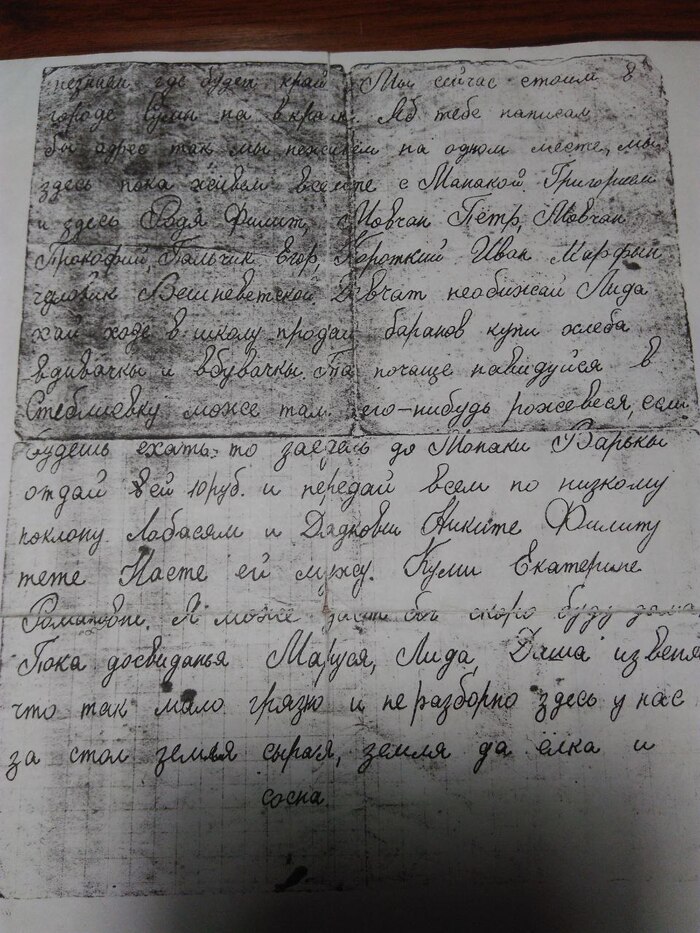 незнаем где будет край Мы сейчас стоим в
городе Сумы на вкраине. Яб тебе написал
бы адрес так мы нежывем на одном месте, мы
здесь пока живем вместе с Манакой Григорием
и здесь Родя Филип, Мовчан Пётр, Мовчан
Прокофий, Пальчик Егор, Короткий Иван Марфын
чуловик Вешневетской. Девчат необижай Лида
хай ходе в школу продай баранов купи хлеба
вдивачкы и вбувачкы. Та почаще навидуйся в
Стеблиевку може там его-нибудь рожевеся, если
будешь ехать, то заедешь до Мопаки Варькы
отдай ей 10 руб. и передай всем по низкому
поклону. Лобасям и Дядковы Никите Филипу
тете Насте ей мужу. Куми Екатерине
Романовне. Я може бог скоро буду дома,
Пока досвиданья Маруся, Лида, Даша извеня
что так мало грязно и неразборно здесь у нас
за стол земля сырая, земля да елка и
сосна